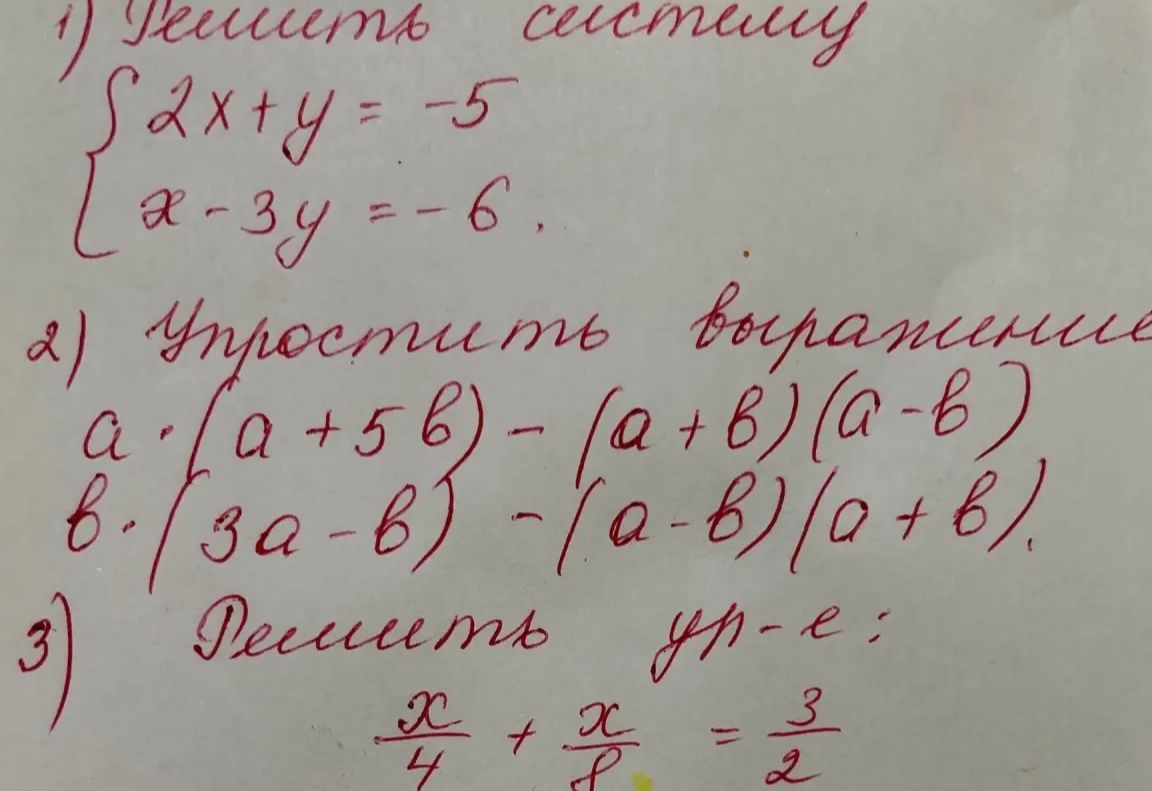 1) Решить систему
{ 2x + y = -5
x - 3y = - 6 .
2) Упростить выражение
a · (a + 5b) - (a + b)(a - b)
b · (3a - b) - (a - b)(a + b).
3) Решить ур-е:
x/4 + x/8 = 3/2